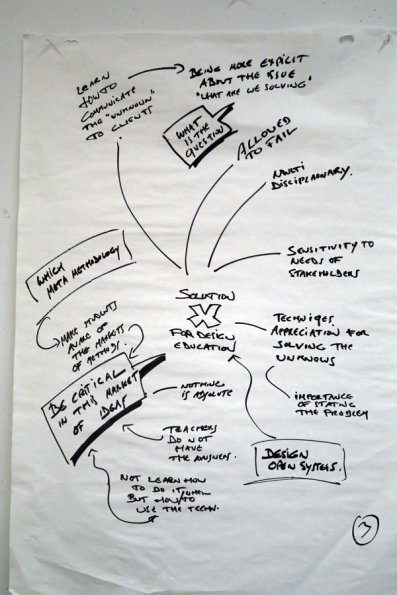 LEARN
HOW TO
COMMUNICATE
THE "UNKNOWN"
TO CLIENTS
BEING MORE EXPLICIT
ABOUT THE ISSUE
"WHAT ARE WE SOLVING"
WHAT
IS THE
QUESTION
ALLOWED
TO FAIL
MULTI
DISCIPLINARY.
SENSITIVITY TO
NEEDS OF
STAKEHOLDERS
WHICH
META METHODOLOGY
MAKE STUDENTS
AWARE OF
THE MARKETS
OF METHODS.
SOLUTION
X
FOR DESIGN
EDUCATION
TECHNIQES.
APPRECIATION FOR
SOLVING THE
UNKNOWS
IMPORTANCE
OF STATING
THE PROBLEM
BE CRITICAL
IN THIS MARKET
OF IDEAS
NOTHING
IS ABSOLUTE
TEACHERS
DO NOT
HAVE
THE ANSWERS.
NOT LEARN HOW
TO DO IT,
BUT HOW TO
USE THE TECHN.
DESIGN
OPEN SYSTEMS.
3